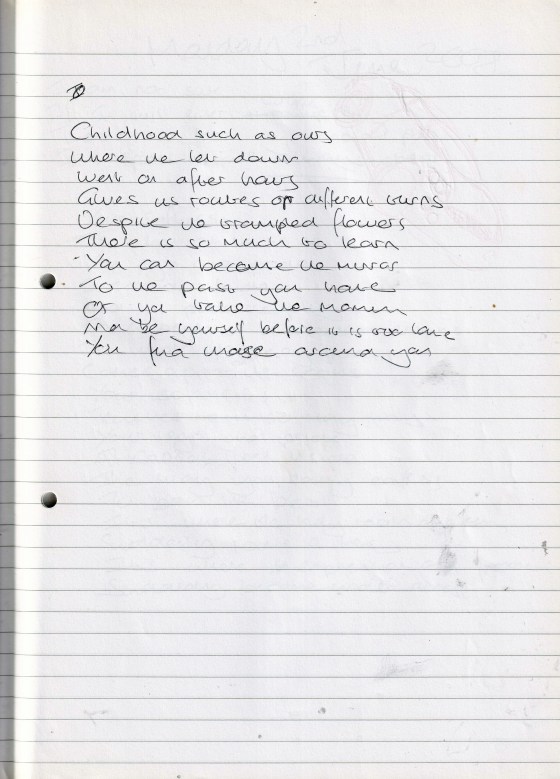 Childhood such as ours
where the let down
went on after hours
Gives us routes of different turns
Despite the trampled flowers
There is so much to learn
You can become the mirror
To the past you have
Or you take the moment
be yourself before it is too late
You find around you